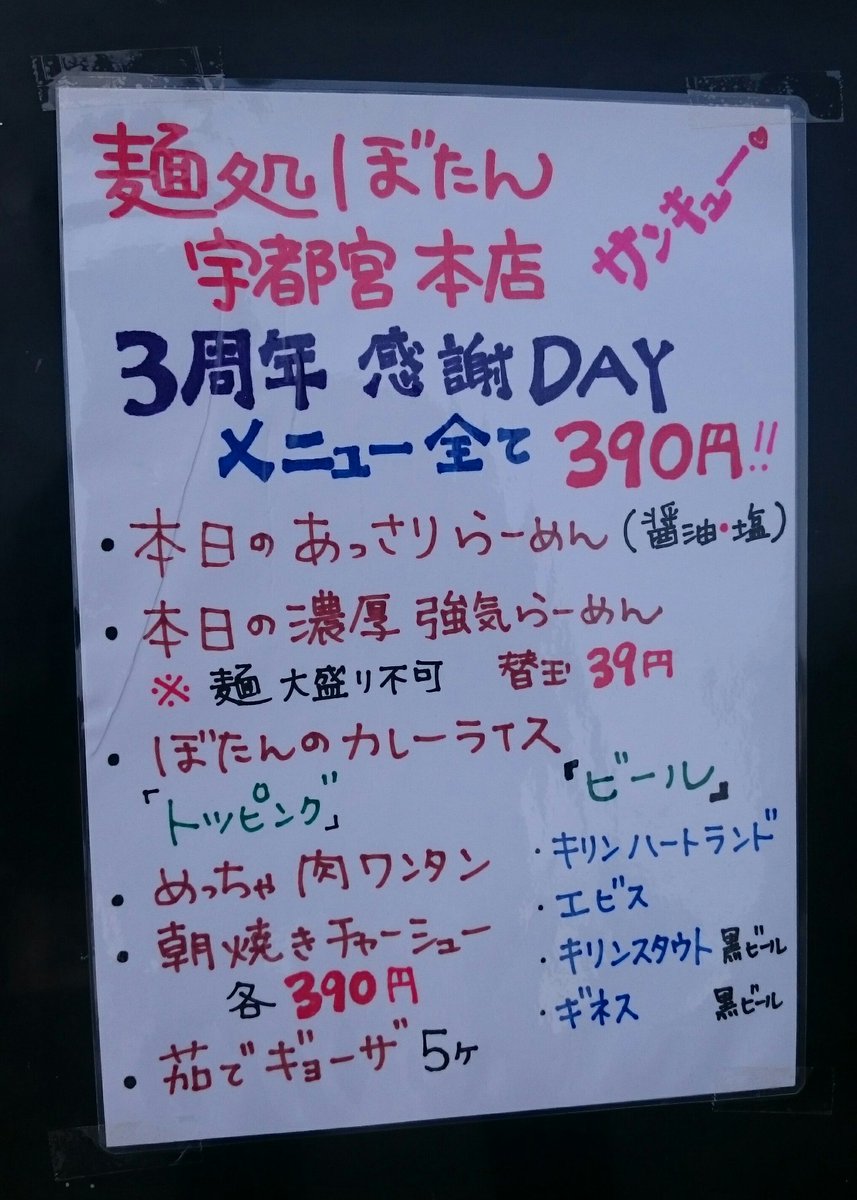 麺処ぼたん
宇都宮本店
サンキュー♥
3周年 感謝DAY
メニュー全て 390円!!
・本日のあっさりらーめん(醤油・塩)
・本日の濃厚 強気らーめん
※ 麺 大盛り不可 替玉 39円
・ぼたんのカレーライス
「トッピング」
・めっちゃ肉ワンタン
・朝焼きチャーシュー
各 390円
・茹でギョーザ 5ヶ
『ビール』
・キリンハートランド
・エビス
・キリンスタウト 黒ビール
・ギネス 黒ビール